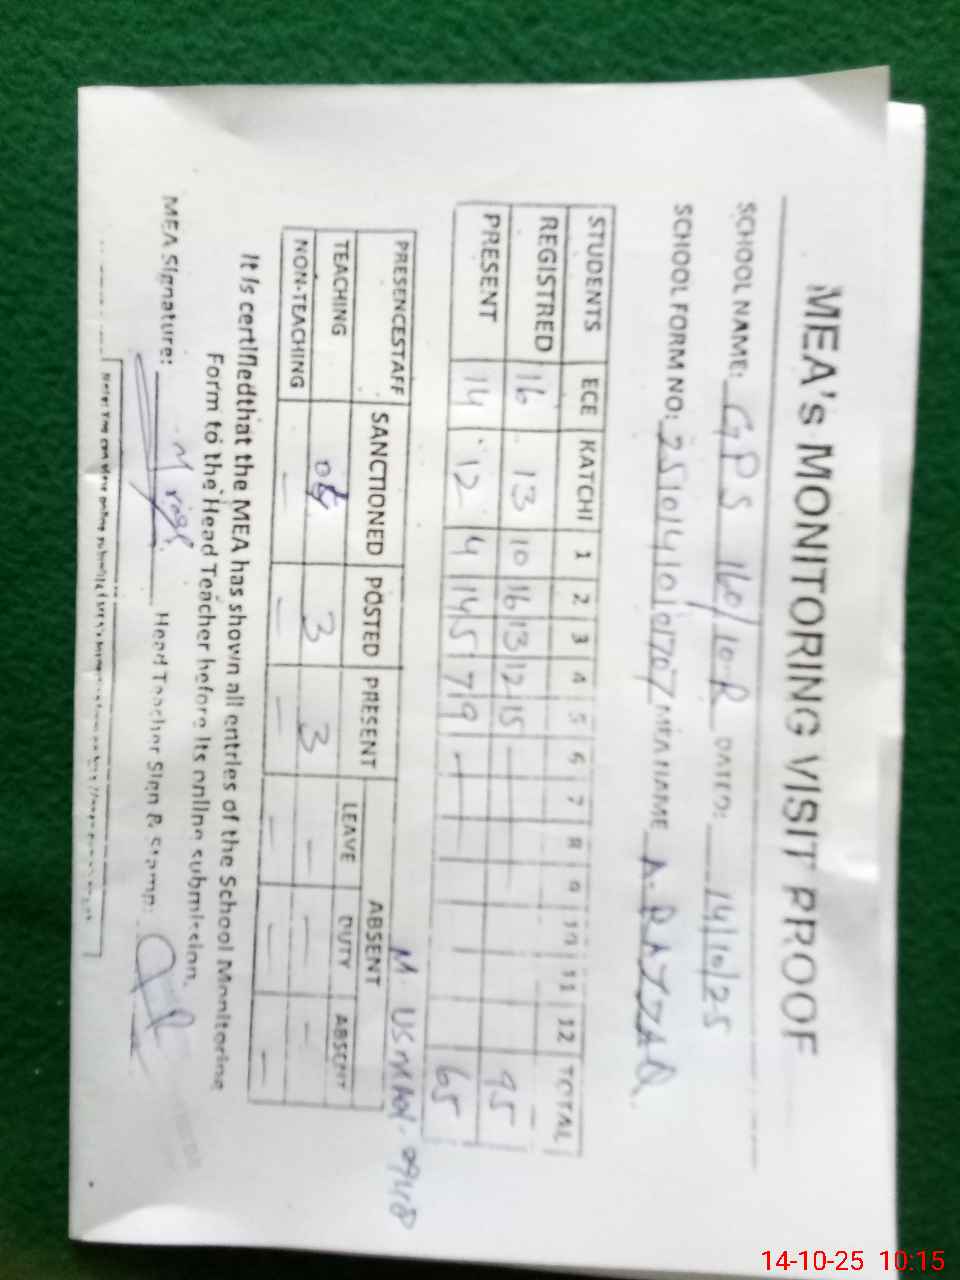 MEA's MONITORING VISIT PROOF
SCHOOL NAME: GPS 160/10R DATED: 14/10/25
SCHOOL FORM NO: 251014100707 MEA NAME A. RAZZAQ
STUDENTS ECE KATCHI 1 2 3 4 5 6 7 8 9 10 11 12 TOTAL
REGISTRED 16 13 10 16 13 12 15 — 95
PRESENT 14 12 4 14 5 7 9 — 65
M. USMAN.
PRESENCESTAFF SANCTIONED POSTED PRESENT ABSENT
LEAVE DUTY ABSENT
TEACHING 3 3 — — —
NON-TEACHING — — — — — —
It is certifiedthat the MEA has shown all entries of the School Monitoring
Form to the Head Teacher before its online submission.
MEA Signature: Head Teacher Sign & Stamp:
Note: You can view online submitted
14-10-25 10:15